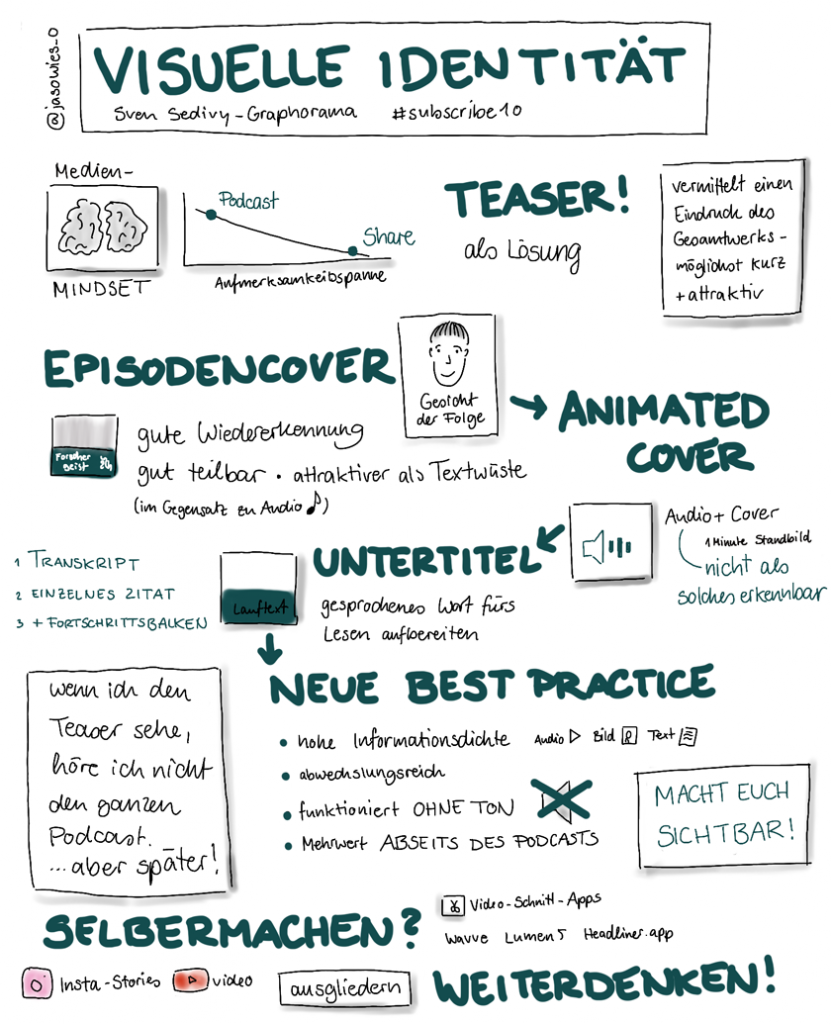 @jasowies_o
VISUELLE IDENTITÄT
Sven Sedivy-Graphorama #subscribe10
Medien-
MINDSET
Podcast
Share
Aufmerksamkeitsspanne
TEASER!
als Lösung
vermittelt einen
Eindruck des
Gesamtwerks -
möglichst kurz
+ attraktiv
EPISODENCOVER
Gesicht
der Folge
ANIMATED
COVER
Forscher
geist
gute Wiedererkennung
gut teilbar · attraktiver als Textwüste
(im Gegensatz zu Audio ♪)
Audio + Cover
1 Minute Standbild
nicht als
solches erkennbar
UNTERTITEL
gesprochenes Wort fürs
Lesen aufbereiten
Lauftext
1 TRANSKRIPT
2 EINZELNES ZITAT
3 + FORTSCHRITTSBALKEN
NEUE BEST PRACTICE
• hohe Informationsdichte Audio Bild Text
• abwechslungsreich
• funktioniert OHNE TON
• Mehrwert ABSEITS DES PODCASTS
wenn ich den
Teaser sehe,
höre ich nicht
den ganzen
Podcast.
...aber später!
MACHT EUCH
SICHTBAR!
SELBERMACHEN?
Video-Schnitt-Apps
Wavve Lumen5 Headliner.app
Insta-Stories video
ausgliedern
WEITERDENKEN!